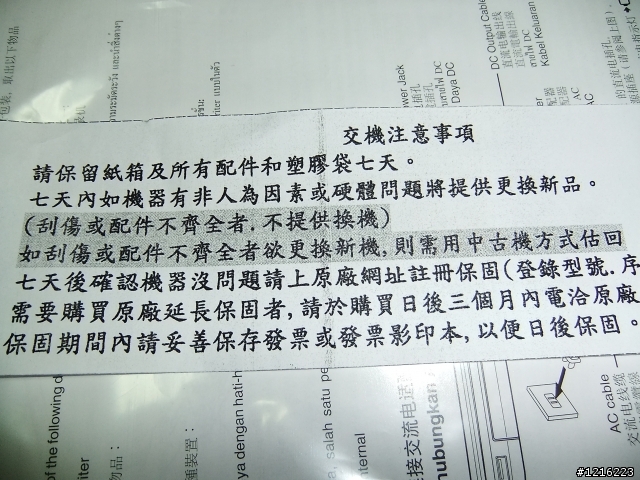 交機注意事項
請保留紙箱及所有配件和塑膠袋七天。
七天內如機器有非人為因素或硬體問題將提供更換新品。
(刮傷或配件不齊全者,不提供換機)
如刮傷或配件不齊全者欲更換新機,則需用中古機方式估回
七天後確認機器沒問題請上原廠網址註冊保固(登錄型號.序
需要購買原廠延長保固者,請於購買日後三個月內電洽原廠
保固期間內請妥善保存發票或發票影印本,以便日後保固。
取出以下物品
wer Jack
Daya DC
DC Output Cable
直流电输出线
直流電輸出線
สายไฟ DC
Kabel Keluaran
AC
AC
of the following
物品：
ya dengan hati-h
salah satu pe
ternal
接交流电话
hubungkan
AC cable
交流电线缆
#1216223